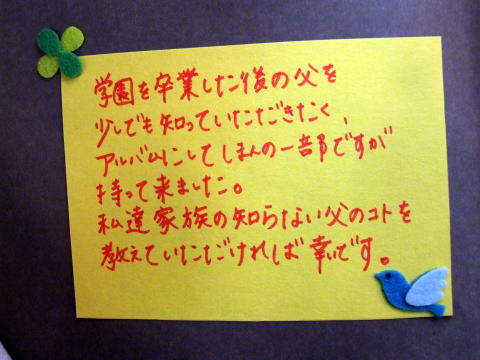 学園を卒業した後の父を
少しでも知っていただきたく、
アルバムにしてほんの一部ですが
持って来ました。
私達家族の知らない父のコトを
教えていただければ幸いです。